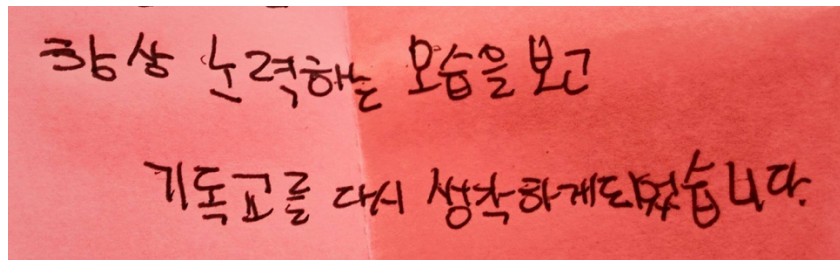 항상 노력하는 모습을 보고
기독교를 다시 생각하게되었습니다.